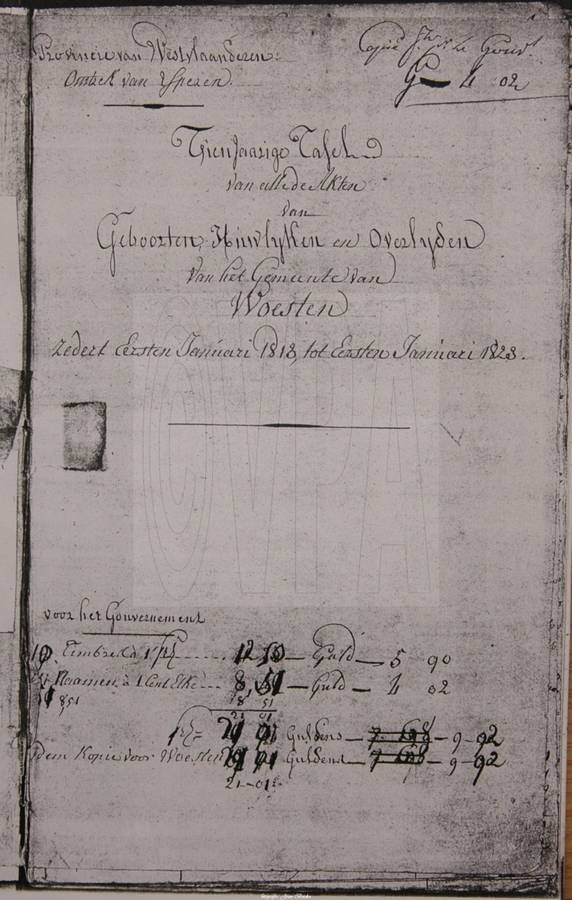 Provincie van Westvlaanderen:
Omtrek van Yperen.
Copie
4 02
Tienjaarige Tafel
van alle de Akten
van
Geboorten, Huwlyken en Overlyden
Van het Gemeente van
Woesten
zedert Eersten Januari 1818, tot Eersten Januari 1823.
CVPA
voor het Gouvernement
Guld — 5 90
Naamen à 1 Cent Elke --- 8,51 — Guld — 4 02
851
21 01
Guldens — 9 - 92
Kopie voor Woesten Guldens — 9 - 92
21 - 01